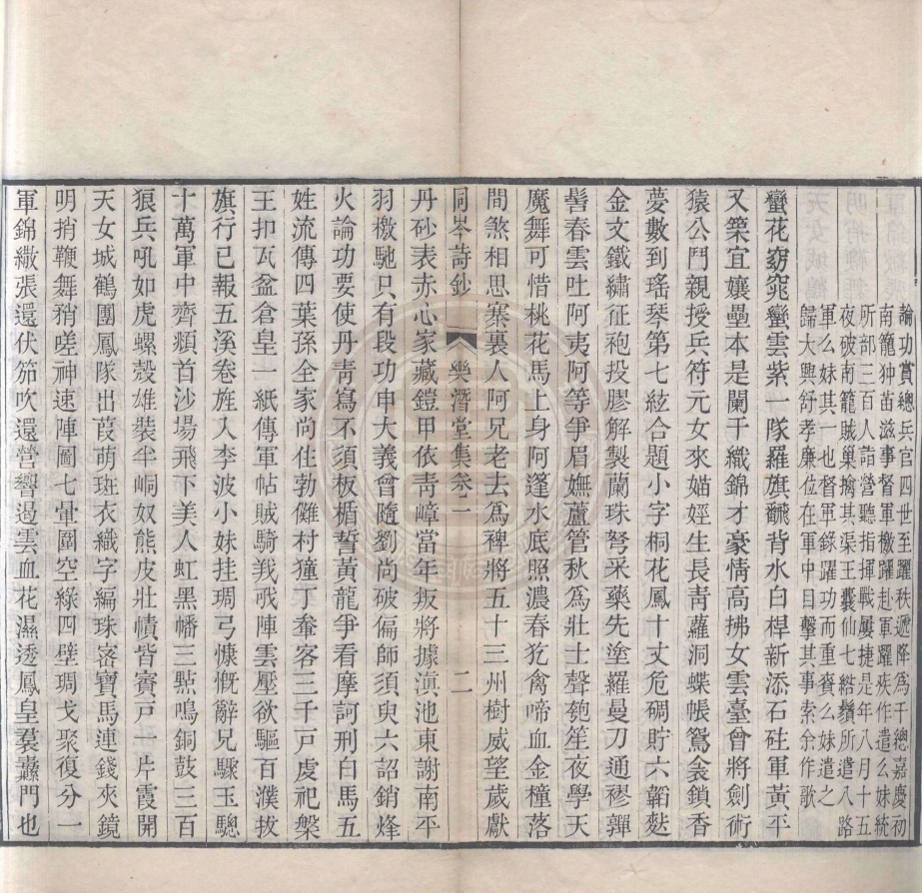 論功賞總兵官四世至躍秩遞降爲千總嘉慶初
南籠狆苗滋事督軍檄躍赴軍躍疾作遣么妹統
所部三百人詣營聽指揮戰屢捷是年八月十五
夜破南籠賊巢擒其渠王囊仙七綹鬚所遣八路
軍么妹其一也督軍錄躍功而重賚么妹遣之
歸大興舒孝廉位在軍中目擊其事索余作歌
蠻花窈窕蠻雲紫一隊羅旗翻背水白桿新添石砫軍黃平
又築宜孃壘本是闌干織錦才豪情高拂女雲臺曾將劍術
猿公鬥親授兵符元女來媌娙生長青蘿洞蝶帳鴛衾鎖香
夢數到瑤琴第七絃合題小字桐花鳳十丈危碉貯六韜麩
金文鐵繡征袍投膠解製蘭珠弩采藥先塗羅曼刀通襏彈
髻春雲吐阿夷阿等爭眉嫵蘆管秋爲壯士聲匏笙夜學天
魔舞可惜桃花馬上身阿蓬水底照濃春犵禽啼血金橦落
間煞相思寨裏人阿兄老去爲裨將五十三州樹威望歲獻
同岑詩鈔 樂潛堂集卷一 二
丹砂表赤心家藏鎧甲依青嶂當年叛將據滇池東謝南平
羽檄馳只有段功申大義曾隨劉尚破偏師須臾六詔銷烽
火論功要使丹青寫不須板楯誓黃龍爭看摩訶刑白馬五
姓流傳四葉孫全家尚住勃儺村獞丁輋客三千戸虔祀槃
王扣瓦盆倉皇一紙傳軍帖賊騎戣戣陣雲壓欲驅百濮拔
旗行已報五溪卷旌入李波小妹挂琱弓慷慨辭兄驟玉驄
十萬軍中齊頫首沙場飛下美人虹黑幡三點鳴銅鼓三百
狼兵吼如虎螺殼雄裝半峒奴熊皮壯幘皆賨戸一片霞開
天女城鶴團鳳隊出葭萌斑衣織字編珠密寶馬連錢夾鏡
明捎鞭舞矟嗟神速陣圖七暈圍空綠四壁琱戈聚復分一
軍錦繖張還伏笳吹還營響遏雲血花濕透鳳皇裙纛門也